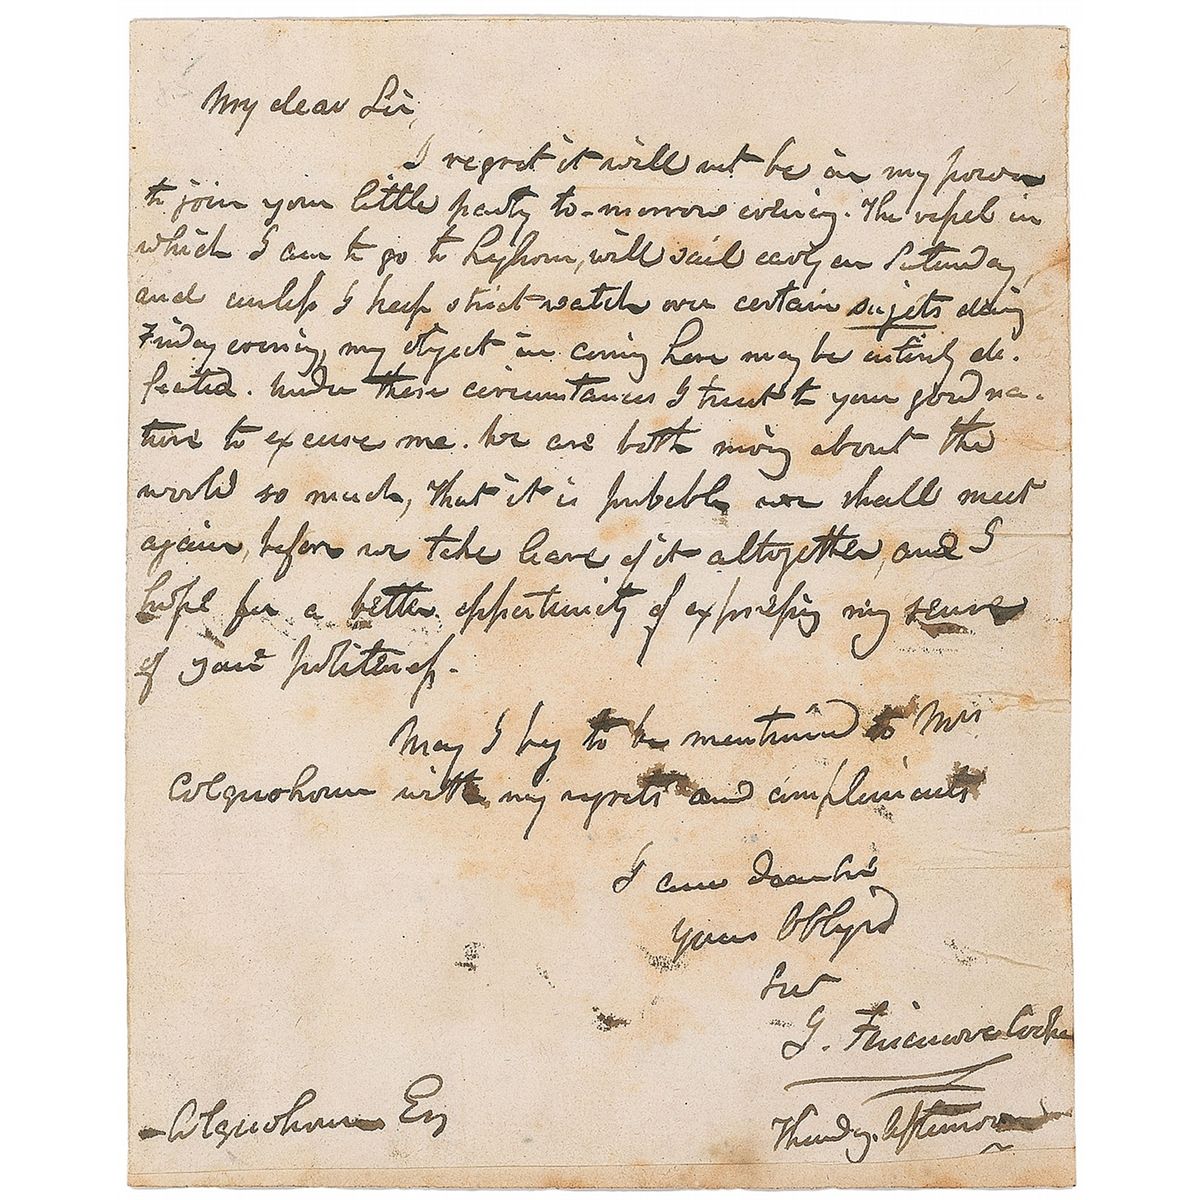 My dear Sir,
I regret it will not be in my power
to join your little party to-morrow evening. The vessel in
which I am to go to Leghorn, will sail early on Saturday,
and unless I keep strict watch over certain sujets during
Friday evening, my object in coming here may be entirely de-
feated. Under these circumstances I trust to your good na-
ture to excuse me. We are both moving about the
world so much, that it is probable we shall meet
again, before we take leave of it altogether, and I
hope for a better opportunity of expressing my sense
of your politeness.
May I beg to be mentioned to Mrs
Colquohoun with my regrets and compliments
I am dear Sir
Yours Oblig'd
Svt
J. Fenimore Cooper
– Colquohoun Esq
Thursday. Afternoon